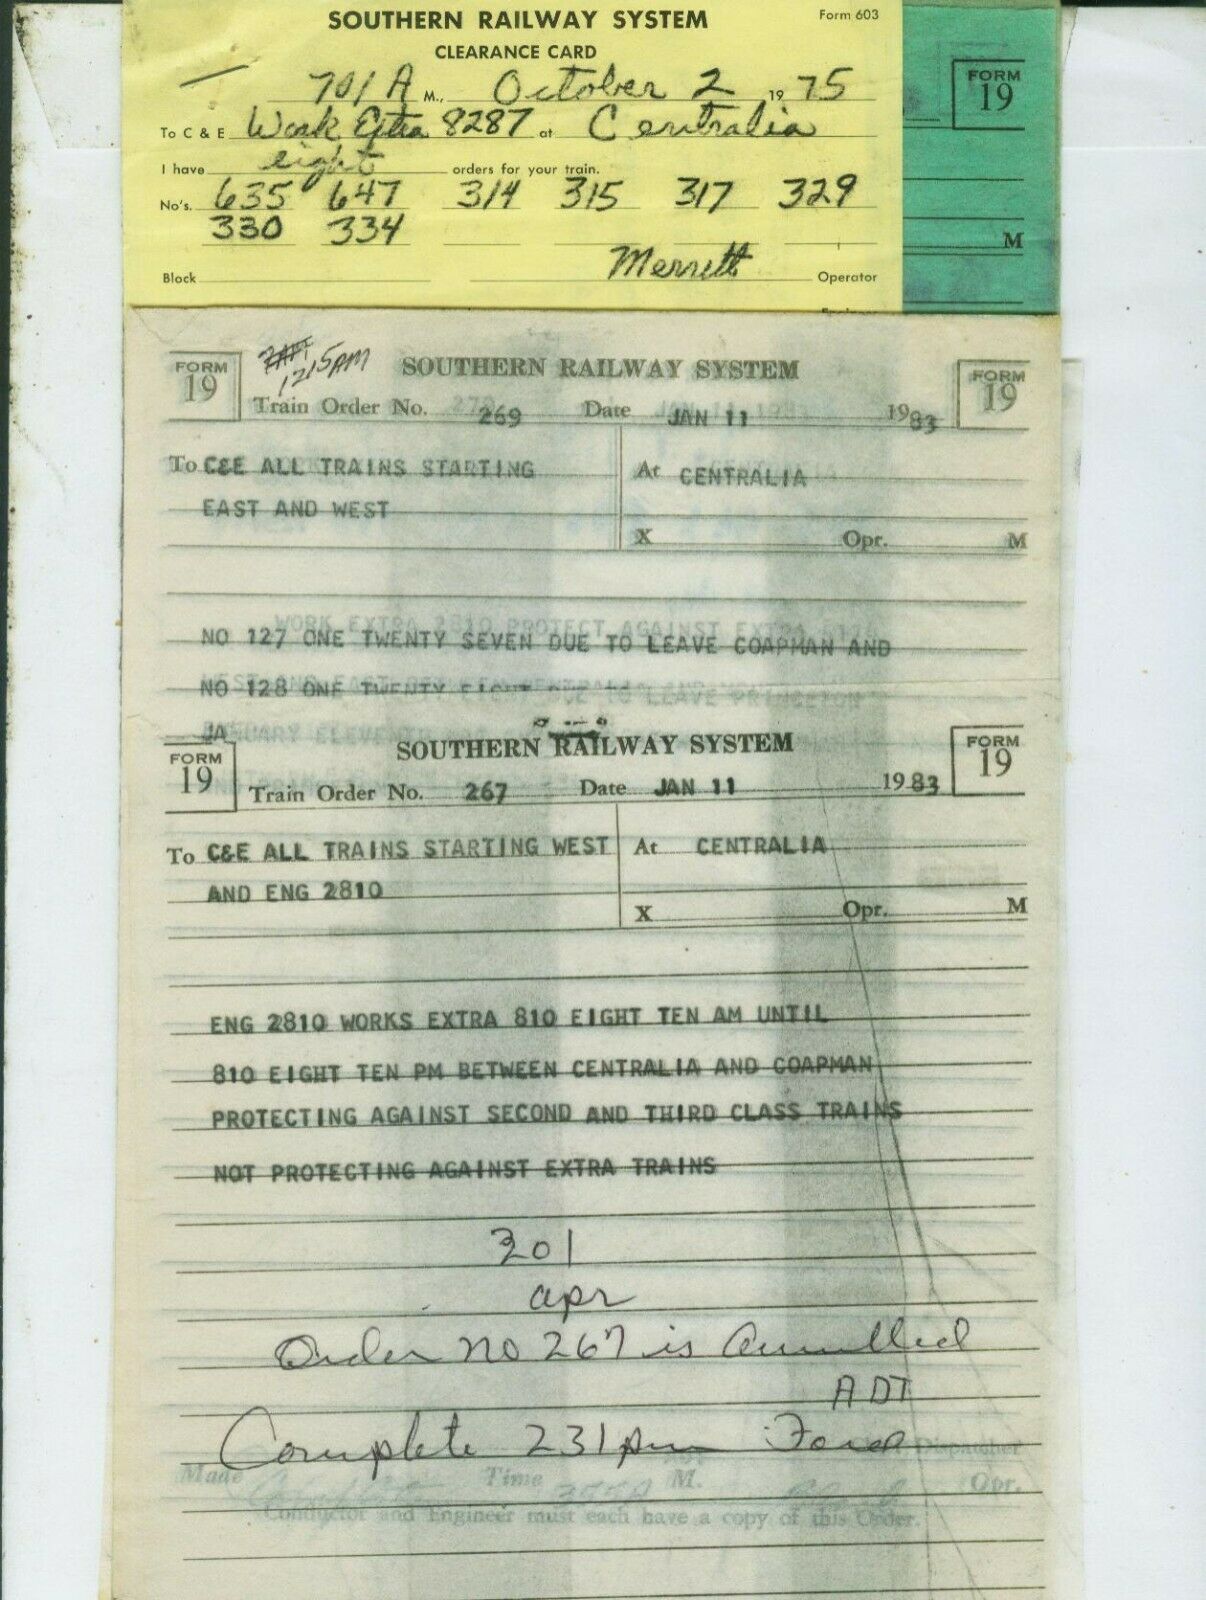 SOUTHERN RAILWAY SYSTEM Form 603
CLEARANCE CARD
701 A M., October 2 1975
To C & E Work Extra 8287 at Centralia
I have eight orders for your train.
No's. 635 647 314 315 317 329
330 334
Merrett
Block Operator
FORM
19
M
FORM
19
1215PM
SOUTHERN RAILWAY SYSTEM
FORM
19
Train Order No. 269 Date JAN 11 1983
To C&E ALL TRAINS STARTING At CENTRALIA
EAST AND WEST
X Opr. M
WORK EXTRA 2810 PROTECT AGAINST EXTRA
NO 127 ONE TWENTY SEVEN DUE TO LEAVE COAPMAN AND
NO 128 ONE TWENTY EIGHT DUE TO LEAVE PRINCETON
JANUARY ELEVENTH
FORM
19
SOUTHERN RAILWAY SYSTEM
FORM
19
Train Order No. 267 Date JAN 11 1983
To C&E ALL TRAINS STARTING WEST At CENTRALIA
AND ENG 2810
X Opr. M
ENG 2810 WORKS EXTRA 810 EIGHT TEN AM UNTIL
810 EIGHT TEN PM BETWEEN CENTRALIA AND COAPMAN
PROTECTING AGAINST SECOND AND THIRD CLASS TRAINS
NOT PROTECTING AGAINST EXTRA TRAINS
301
opr
Order no 267 is Annulled
ADT
Complete 231 pm Ford
Dispatcher
Made Time M. Opr.
Conductor and Engineer must each have a copy of this Order.